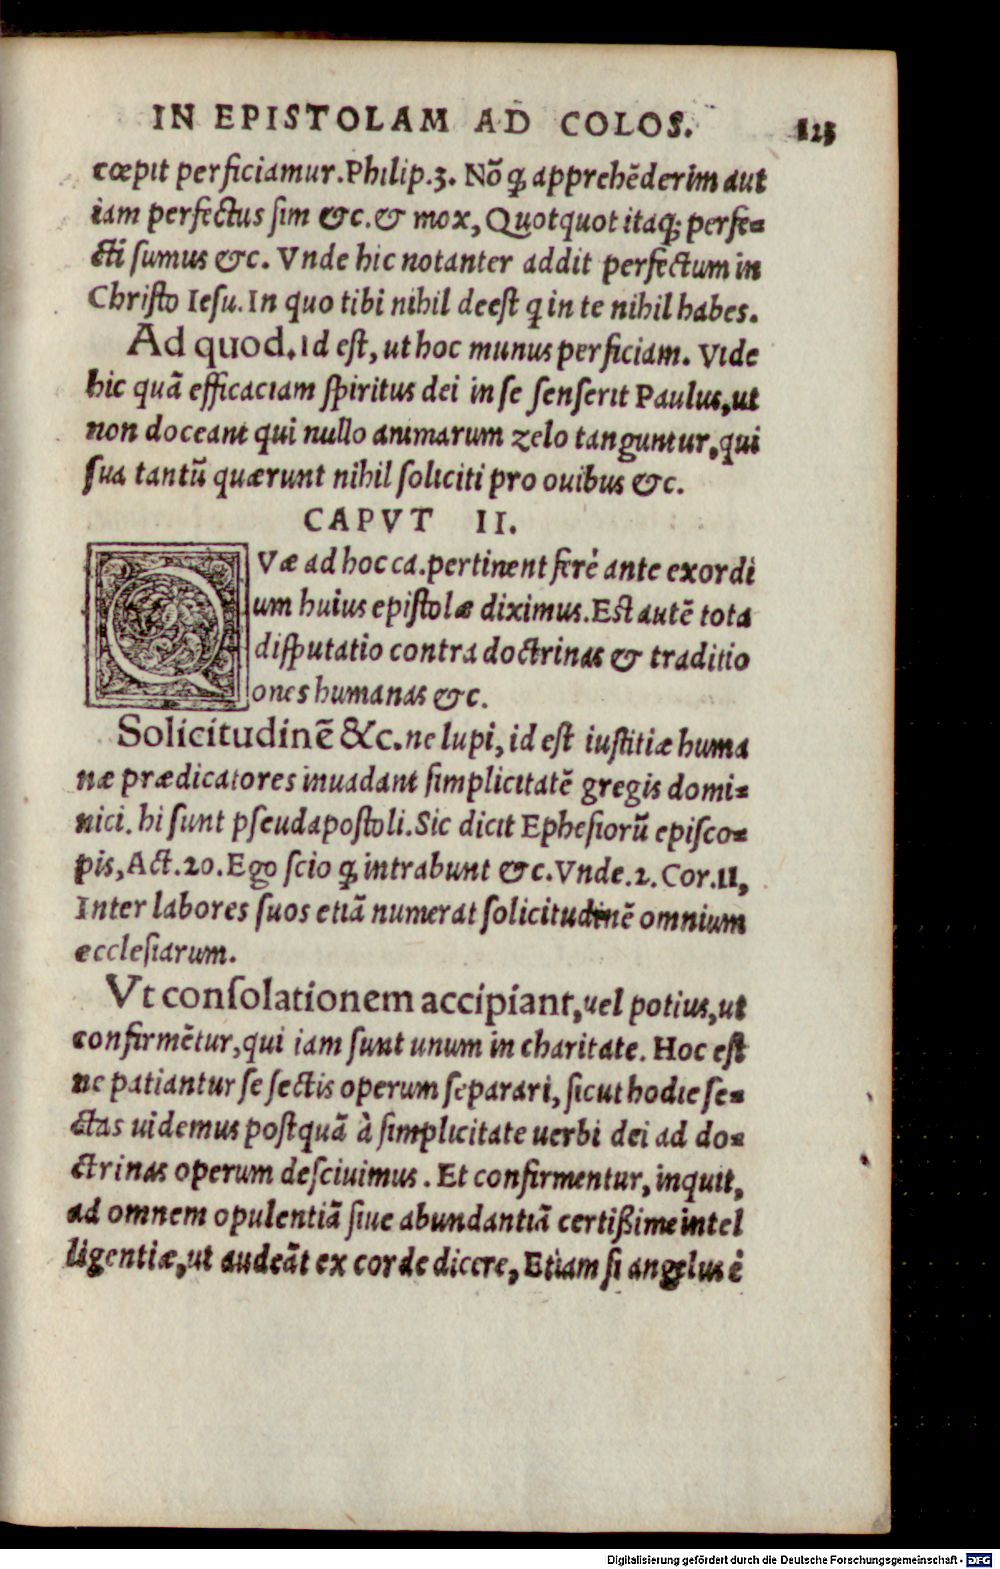 IN EPISTOLAM AD COLOS. 125
cœpit perficiamur. Philip.3. Nō ꝗ apprehēderim aut
iam perfectus sim &c. & mox, Quotquot itaq; perfe-
cti sumus &c. Vnde hic notanter addit perfectum in
Christo Iesu. In quo tibi nihil deest ꝗ in te nihil habes.
Ad quod. Id est, ut hoc munus perficiam. Vide
hic quā efficaciam spiritus dei in se senserit Paulus, ut
non doceant qui nullo animarum zelo tanguntur, qui
sua tantū quærunt nihil soliciti pro ouibus &c.
CAPVT II.
QVæ ad hoc ca. pertinent ferè ante exordi
um huius epistolæ diximus. Est autē tota
disputatio contra doctrinas & traditio
ones humanas &c.
Solicitudinē &c. ne lupi, id est iustitiæ huma
næ prædicatores inuadant simplicitatē gregis domi-
nici. hi sunt pseudapostoli. Sic dicit Ephesiorū episco-
pis, Act.20. Ego scio ꝗ intrabunt &c. Vnde.2. Cor.11,
Inter labores suos etiā numerat solicitudinē omnium
ecclesiarum.
Vt consolationem accipiant, uel potius, ut
confirmētur, qui iam sunt unum in charitate. Hoc est
ne patiantur se sectis operum separari, sicut hodie se-
ctas uidemus postquā à simplicitate uerbi dei ad do-
ctrinas operum desciuimus. Et confirmentur, inquit,
ad omnem opulentiā siue abundantiā certißime intel
ligentiæ, ut audeāt ex corde dicere, Etiam si angelus è
Digitalisierung gefördert durch die Deutsche Forschungsgemeinschaft - DFG